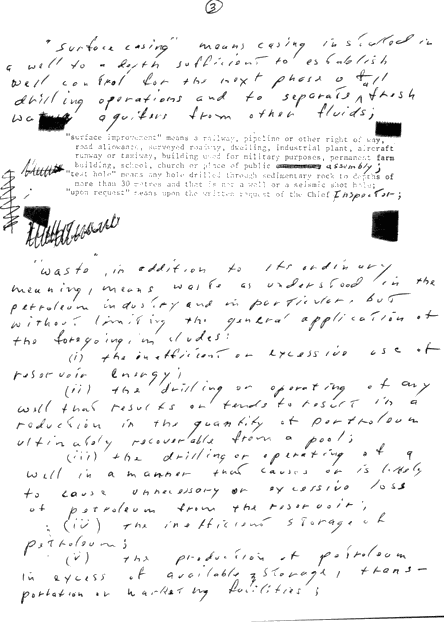 3
"surface casing" means casing installed in
a well to a depth sufficient to establish
well control for the next phase of
drilling operations and to separate all fresh
water aquifers from other fluids;
"surface improvement" means a railway, pipeline or other right of way,
road allowance, surveyed roadway, dwelling, industrial plant, aircraft
runway or taxiway, building used for military purposes, permanent farm
building, school, church or place of public assembly;
"test hole" means any hole drilled through sedimentary rock to depths of
more than 30 metres and that is not a well or a seismic shot hole;
"upon request" means upon the written request of the Chief Inspector;
"waste", in addition to its ordinary
meaning, means waste as understood in the
petroleum industry and in particular, but
without limiting the general application of
the foregoing, includes:
(i) the inefficient or excessive use of
reservoir energy;
(ii) the drilling or operating of any
well that results or tends to result in a
reduction in the quantity of petroleum
ultimately recoverable from a pool;
(iii) the drilling or operating of a
well in a manner that causes or is likely
to cause unnecessary or excessive loss
of petroleum from the reservoir;
(iv) the inefficient storage of
petroleum;
(v) the production of petroleum
in excess of available storage, trans-
portation or marketing facilities;